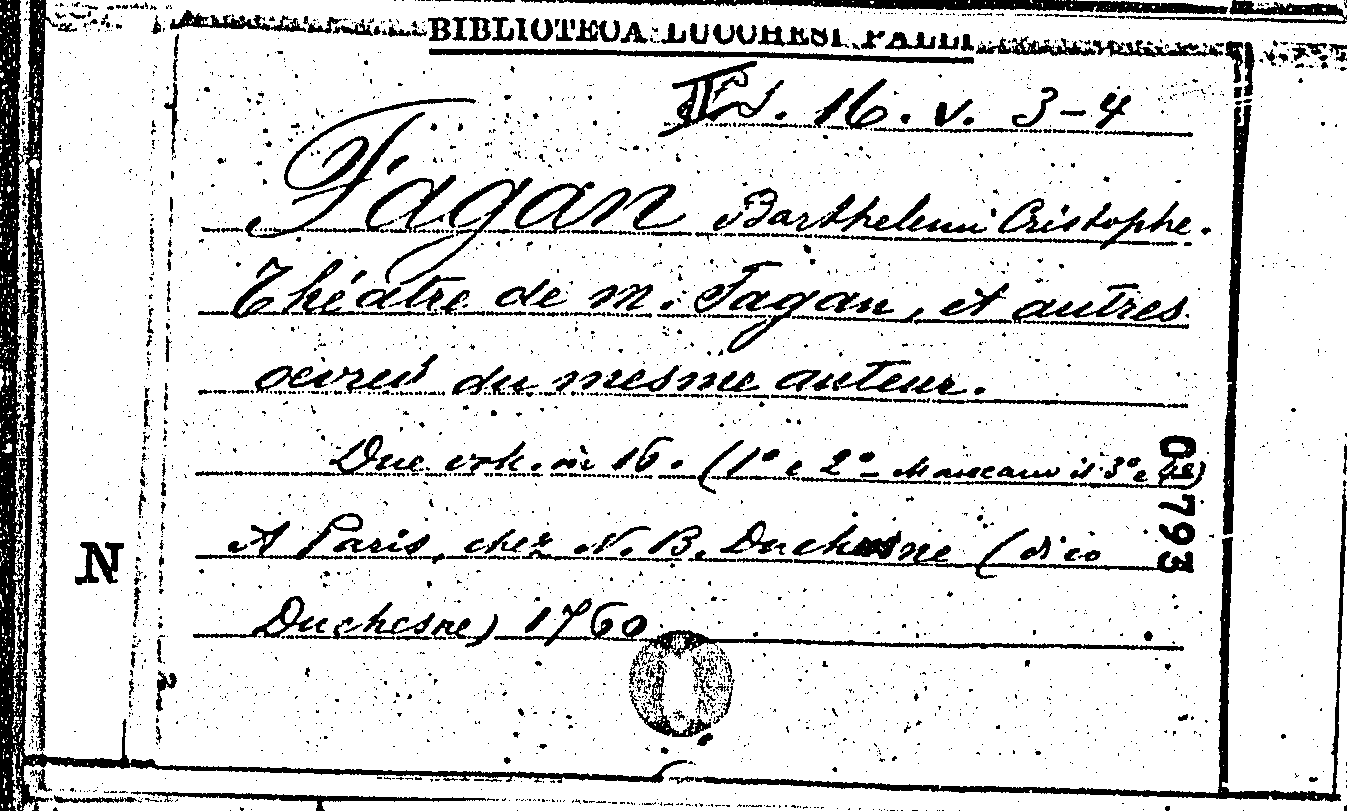 BIBLIOTECA LUCCHESI PALLI
16. V. 3-4
Fagan Barthelemi Cristophe.
Théâtre de M. Fagan, et autres
oevres du mesme auteur.
Due vol. in 16. (1º e 2º - Mancano il 3º e 4º)
A Paris, chez N. B. Duchesne (dico
Duchesne) 1760
N
0793